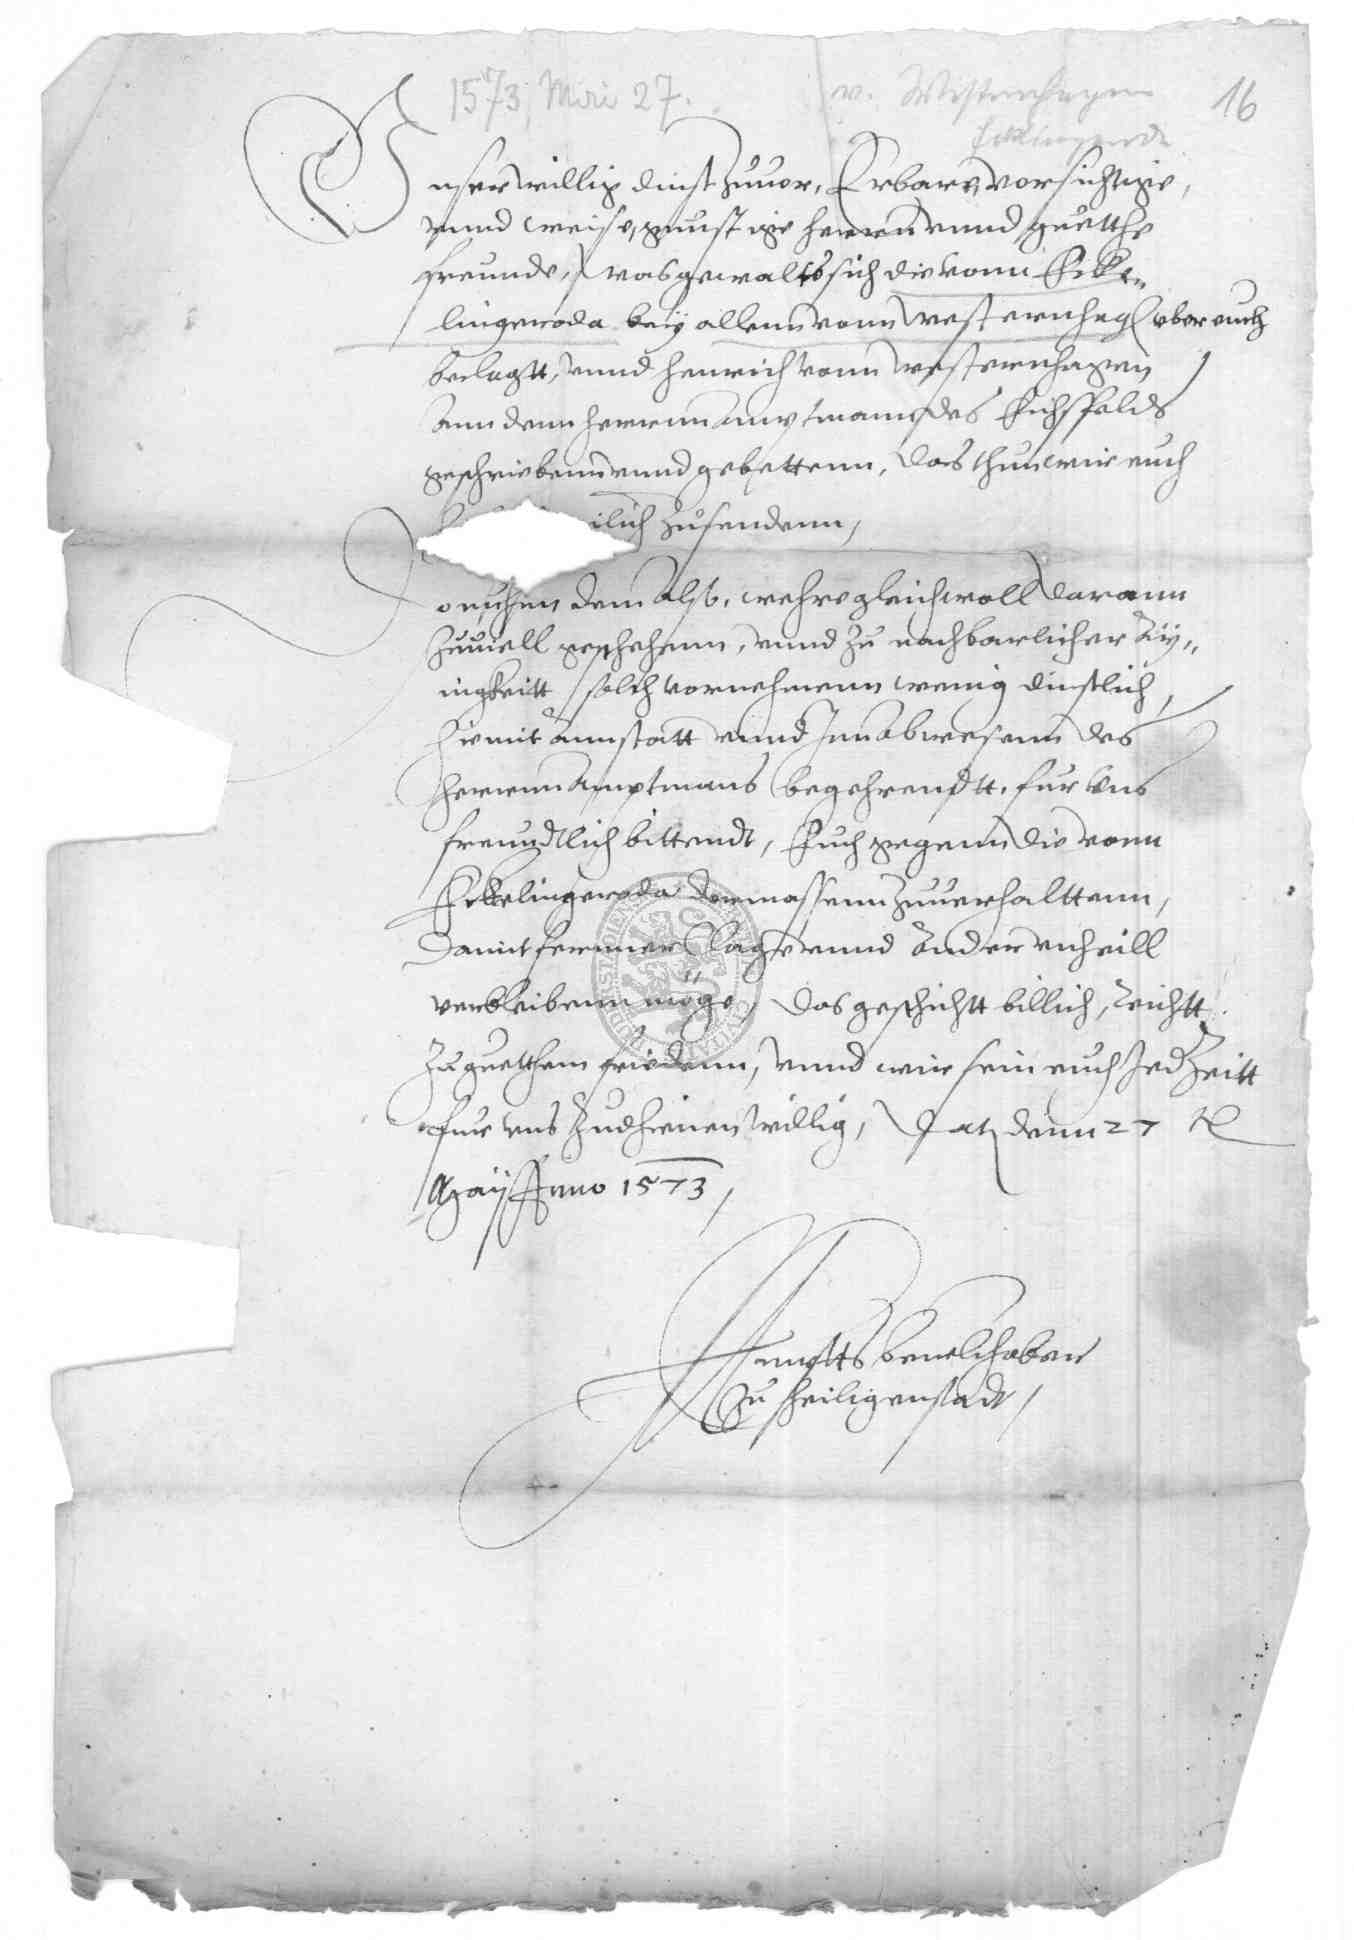 1573, Mai 27.
v. Westernhagen
16
Ecklingerode
Unser willig dinst zuuor, Erbare, vorsichtige,
vnnd weise, gunstige herrnn vnnd guetthe
freunde, was gewalts sich die vonn Ecke„
lingeroda beÿ allenn vonn westernhag vber euch
beclagtt, vnnd Henrich vonn westernhagen
ann denn herrnn Amptmann des Eichsfelds
geschriebenn vnnd gebettenn, das thun wir euch
zusendenn,
dem also, wehre gleichwoll darann
zuuiell geschehenn, vnnd zu nachbarlicher Aÿ„
nigkeitt solch vornehmenn wenig dinstlich,
hiemit annstatt vnnd Inn Abwesenn des
herrnn Amptmans begehrendtt, fur vns
freundtlich bittendt, Euch gegenn die vonn
Eckelingeroda dermassenn zuuerhalttenn,
damit fernner clage vnnd Ander vnheill
verbleibenn möge, das geschichtt billich, reichtt
zu guetthem friedenn, vnnd wir sein euch Jed Zeitt
fur vns zudhienen willig, Dat denn 27
Maÿ Anno 1573,
Amptts beuelchaber
zu Heiligenstadt,